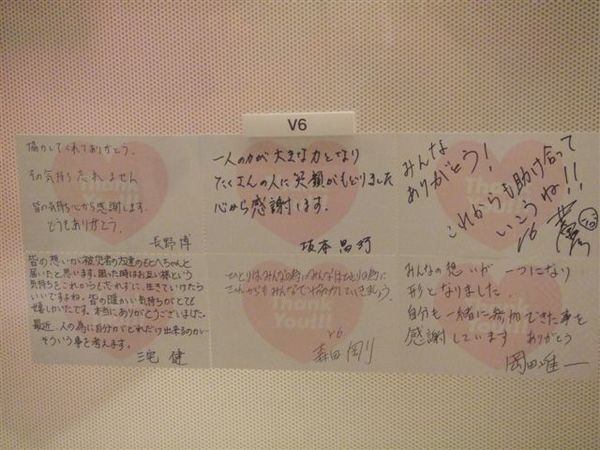 V6
協力してくれてありがとう。
その気持ち忘れません
皆の気持ち心から感謝します。
どうもありがとう。
長野 博
一人の力が大きな力となり
たくさんの人に笑顔がもどりました
心から感謝します。
坂本昌行
みんな
ありがとう!
これからも助け合って
いこうね!!
V6
皆の想いが被災者の友達のもとへちゃんと
届いたと思います。困った時はお互い様という
気持ちをこれからも忘れずに、生きていけたら
いいですよね。皆の暖かい気持ちがとても
嬉しかったです。本当にありがとうございました。
最近、人の為に自分がどれだけ出来るのか
そういう事を考えます。
三宅 健
ひとりはみんなの為にみんなはひとりの為に
これからもみんなで協力していきましょう。
V6
森田 剛
みんなの想いが 一つになり
形となりました。
自分も一緒に参加できた事を
感謝しています ありがとう
岡田准一
Thank
You!!!